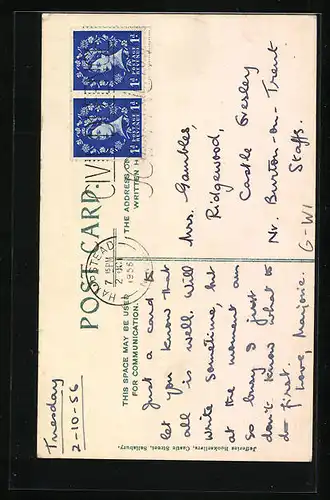 POST CARD
THIS SPACE MAY BE USED
FOR COMMUNICATION.
THE ADDRESS ON
WRITTEN H
HAMPSTEAD
7 15 PM
2 OCT
1956
POSTAGE REVENUE
1D 1D
POSTAGE REVENUE
1D 1D
Tuesday
2-10-56
Just a card to
let you know that
all is well. Will
write sometime, but
at the moment am
so busy I just
don't know what to
do first.
Love, Marjorie.
Mrs. Gambles,
Ridgewood,
Castle Gresley
Nr. Burton-on-Trent
Staffs.
G-W1
Jefferies Booksellers, Castle Street, Salisbury.